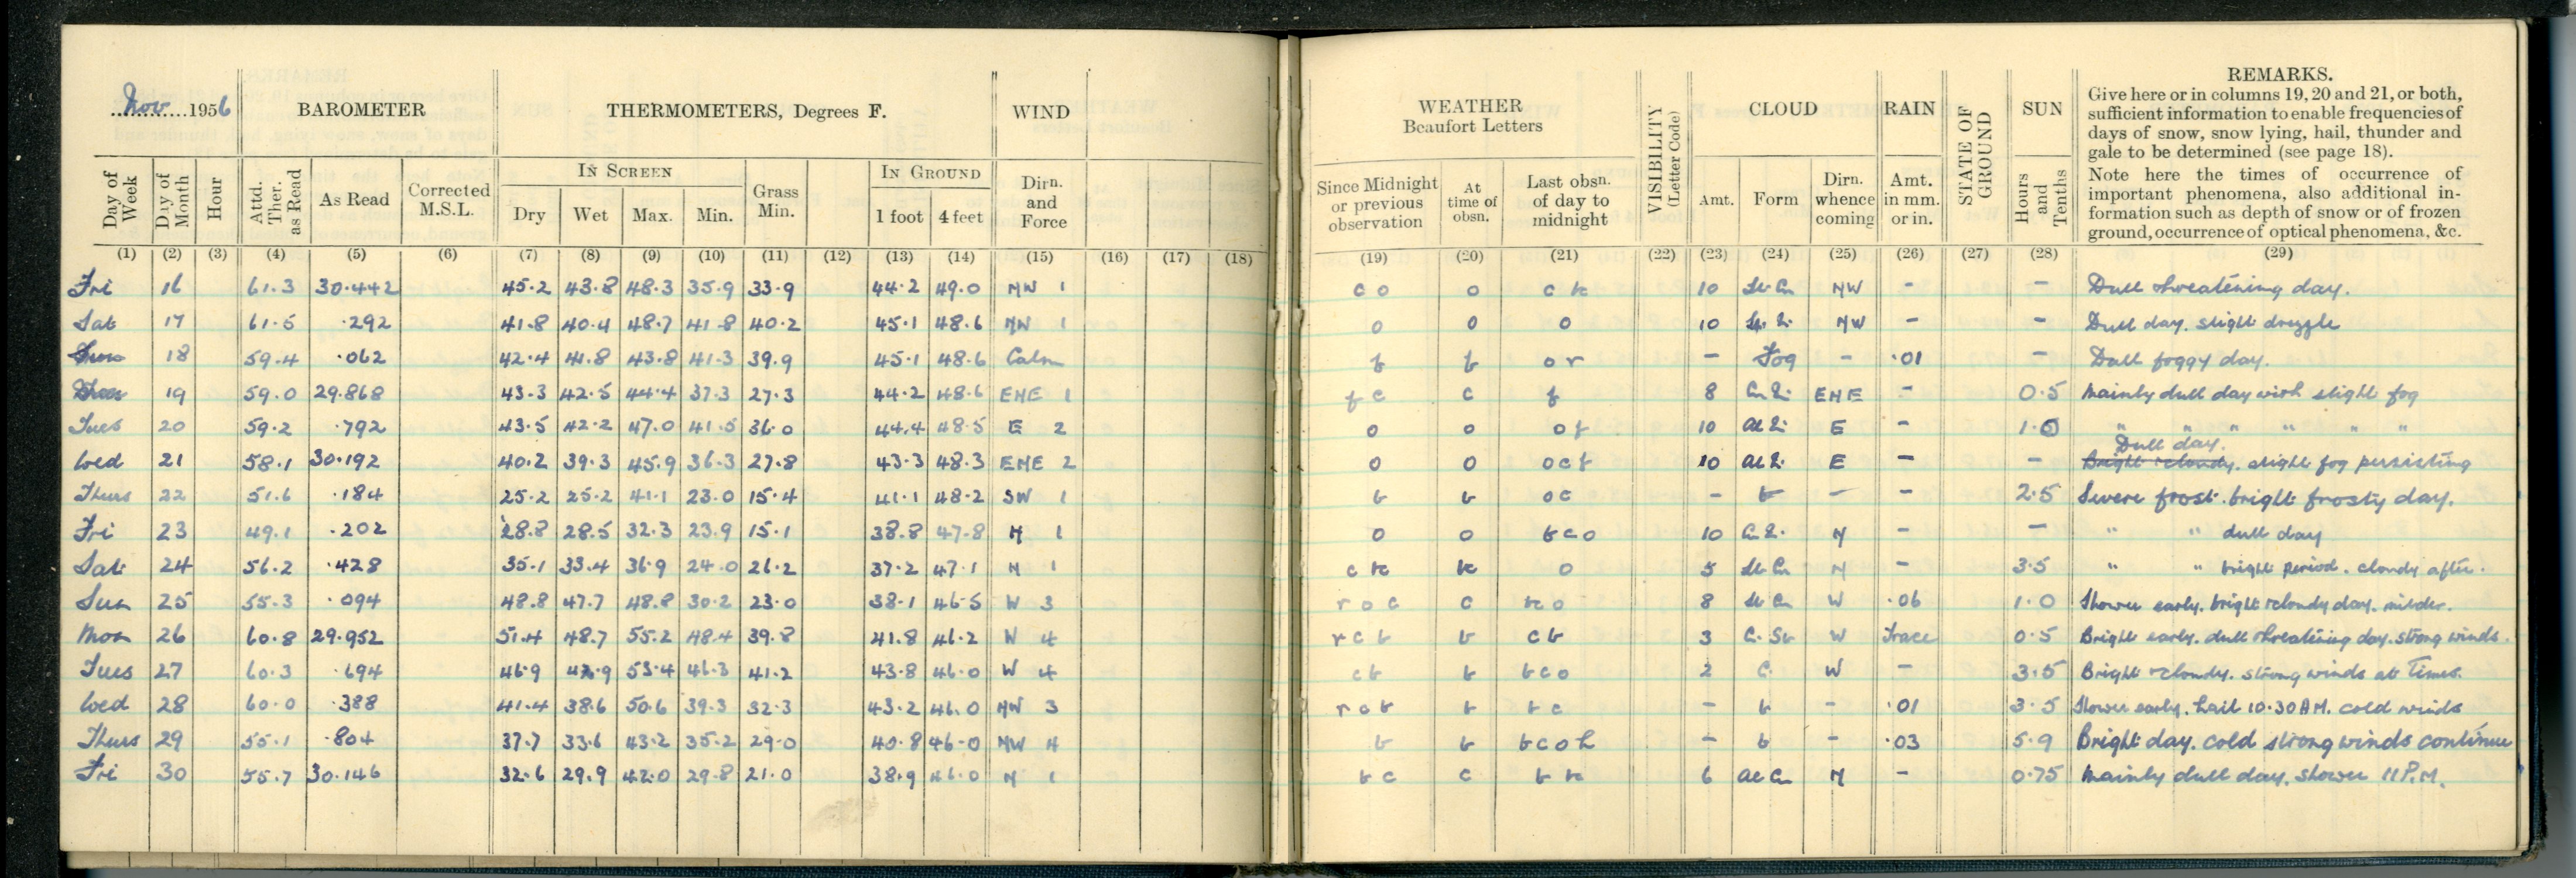 Nov 1956 BAROMETER THERMOMETERS, Degrees F. WIND
Day of Week Day of Month Hour Attd. Ther. as Read As Read Corrected M.S.L. IN SCREEN Dry Wet Max. Min. Grass Min. IN GROUND 1 foot 4 feet Dirn. and Force
(1) (2) (3) (4) (5) (6) (7) (8) (9) (10) (11) (12) (13) (14) (15) (16) (17) (18)
Fri 16 61.3 30.442 45.2 43.8 48.3 35.9 33.9 44.2 49.0 NW 1
Sat 17 61.5 .292 41.8 40.4 48.7 41.8 40.2 45.1 48.6 NW 1
Sun 18 59.4 .062 42.4 41.8 43.8 41.3 39.9 45.1 48.6 Calm
19 59.0 29.868 43.3 42.5 44.4 37.3 27.3 44.2 48.6 ENE 1
Tues 20 59.2 .792 43.5 42.2 47.0 41.5 36.0 44.4 48.5 E 2
Wed 21 58.1 30.192 40.2 39.3 45.9 36.3 27.8 43.3 48.3 ENE 2
Thurs 22 51.6 .184 25.2 25.2 41.1 23.0 15.4 41.1 48.2 SW 1
Fri 23 49.1 .202 28.8 28.5 32.3 23.9 15.1 38.8 47.8 N 1
Sat 24 56.2 .428 35.1 33.4 36.9 24.0 21.2 37.2 47.1 N 1
Sun 25 55.3 .094 48.8 47.7 48.8 30.2 23.0 38.1 46.5 W 3
Mon 26 60.8 29.952 51.4 48.7 55.2 48.4 39.8 41.8 46.2 W 4
Tues 27 60.3 .694 46.9 53.4 46.3 41.2 43.8 46.0 W 4
Wed 28 60.0 .388 41.4 38.6 50.6 39.3 32.3 43.2 46.0 NW 3
Thurs 29 55.1 .804 37.7 33.6 43.2 35.2 29.0 40.8 46.0 NW 4
Fri 30 55.7 30.146 32.6 29.9 42.0 29.8 21.0 38.9 46.0 N 1
WEATHER Beaufort Letters VISIBILITY (Letter Code) CLOUD RAIN STATE OF GROUND SUN REMARKS.
Give here or in columns 19, 20 and 21, or both,
sufficient information to enable frequencies of
days of snow, snow lying, hail, thunder and
gale to be determined (see page 18).
Note here the times of occurrence of
important phenomena, also additional in-
formation such as depth of snow or of frozen
ground, occurrence of optical phenomena, &c.
Since Midnight or previous observation At time of obsn. Last obsn. of day to midnight Amt. Form Dirn. whence coming Amt. in mm. or in. Hours and Tenths
(19) (20) (21) (22) (23) (24) (25) (26) (27) (28) (29)
c o o c bc 10 St Cu NW - - Dull threatening day.
o o o 10 NW - - Dull day. slight drizzle
f f o r - Fog - .01 - Dull foggy day.
f c c f 8 ENE - 0.5 Mainly dull day with slight fog
o o o f 10 E - 1.0 " " " " " "
Dull day.
o o o c f 10 E - - Bright & cloudy. slight fog persisting
b b o c - b - - 2.5 Severe frost. bright frosty day.
o o b c o 10 N - - " " dull day
c bc bc o 5 St Cu N - 3.5 " " bright period. cloudy after.
r o c c bc o 8 St Cu W .06 1.0 Shower early. bright & cloudy day. milder.
r c b b c b 3 C. St W Trace 0.5 Bright early. dull threatening day. strong winds.
c b b b c o 2 C. W - 3.5 Bright & cloudy. strong winds at Times.
r c b b b c - b - .01 3.5 Shower early. hail 10.30 AM. cold winds
b b b c o h - b - .03 5.9 Bright day. cold strong winds continue
b c c b bc 6 Al Cu N - 0.75 Mainly dull day. shower 11 P.M.